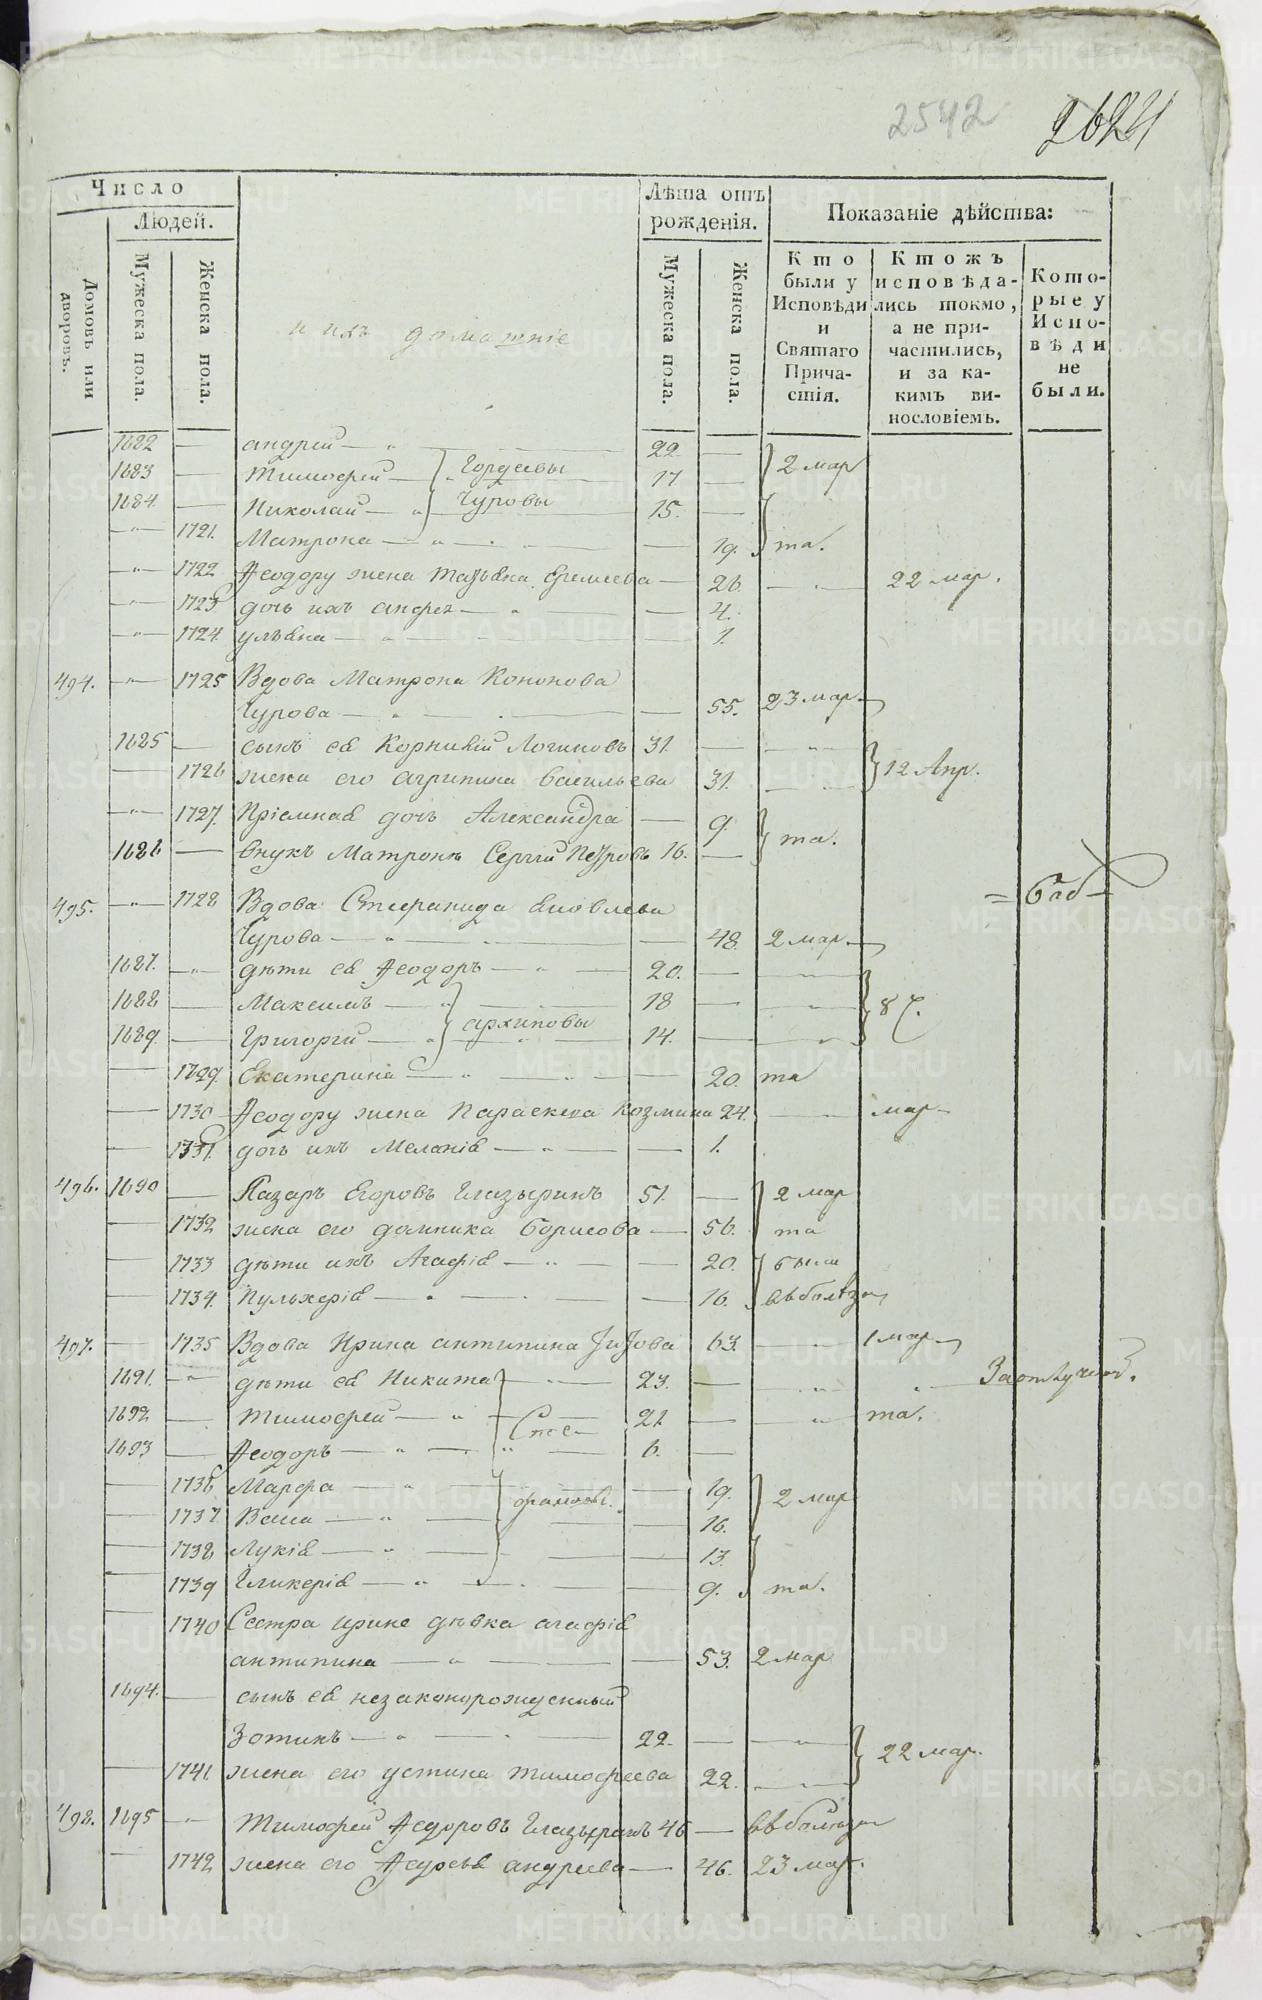 2542
2624
Число
Людей.
Домовъ или дворовъ.
Мужеска пола.
Женска пола.
и ихъ домашніе
Лѣта отъ рожденія.
Мужеска пола.
Женска пола.
Показаніе дѣйства:
Кто были у Исповѣди и Святаго Причастія.
Ктожъ исповѣдались токмо, а не причастились, и за какимъ винословіемъ.
Которые у Исповѣди не были.
1682 — андрей — 22 —
1683 — Тимофей — Гордѣевы 17 — 2 мар
1684 — Николай — Чуровы 15. —
1721. Матрона — 19. та.
1722 Ѳеодору жена Татьяна Еремѣева — 26. 22 мар.
1723 дочь ихъ — 4.
1724 ульяна — 1.
494. 1725 Вдова Матрона Кононова
Чурова — 55. 23 мар.
1685 — сынъ ея Корнилій Логиновъ 31. —
1726 жена его агрипина васильева 31. 12 Апр.
1727. Пріемная дочь Александра — 9.
1686 — внукъ Матроны Сергій Петровъ 16. — та.
495. 1728 Вдова Степанида яковлева
Чурова — 48. 2 мар.
1687. дѣти ея Ѳеодоръ — 20. —
1688 — Максимъ — 18 —
1689. — Григорій — архиповы 14. —
1729. Екатерина — 20. та
1730 Ѳеодору жена Параскева Козмина 24. мар
1731. дочь ихъ Меланія — 1.
496. 1690 — Лазарь Егоровъ Глазыринъ 51. — 2 мар
1732 жена его домника борисова — 56. та
1733 дѣти ихъ Агафія — 20.
1734. Пульхерія — 16. въ болѣзн
497. 1735 Вдова Ирина антипина 63. 1 мар
1691. дѣти ея Никита 23. — За отлучкой.
1692 — Тимофей — 21 — та.
1693 — Ѳеодоръ — Сте 6. —
1736 Марфа — 19. 2 мар
1737 Васса — фановы. 16.
1738 Лукія — 13.
1739 Гликерія — 9. та.
1740 Сестра ирине дѣвка агафія
антипина — 53. 2 мар
1694. — сынъ ея незаконорожденный
Зотикъ — 22. —
1741 жена его устина тимофеева 22. 22 мар.
498. 1695 Тимофей Ѳедоровъ Глазыринъ 46 — въ болѣзн
1742 жена его Ѳедосья андреева — 46. 23 мар.